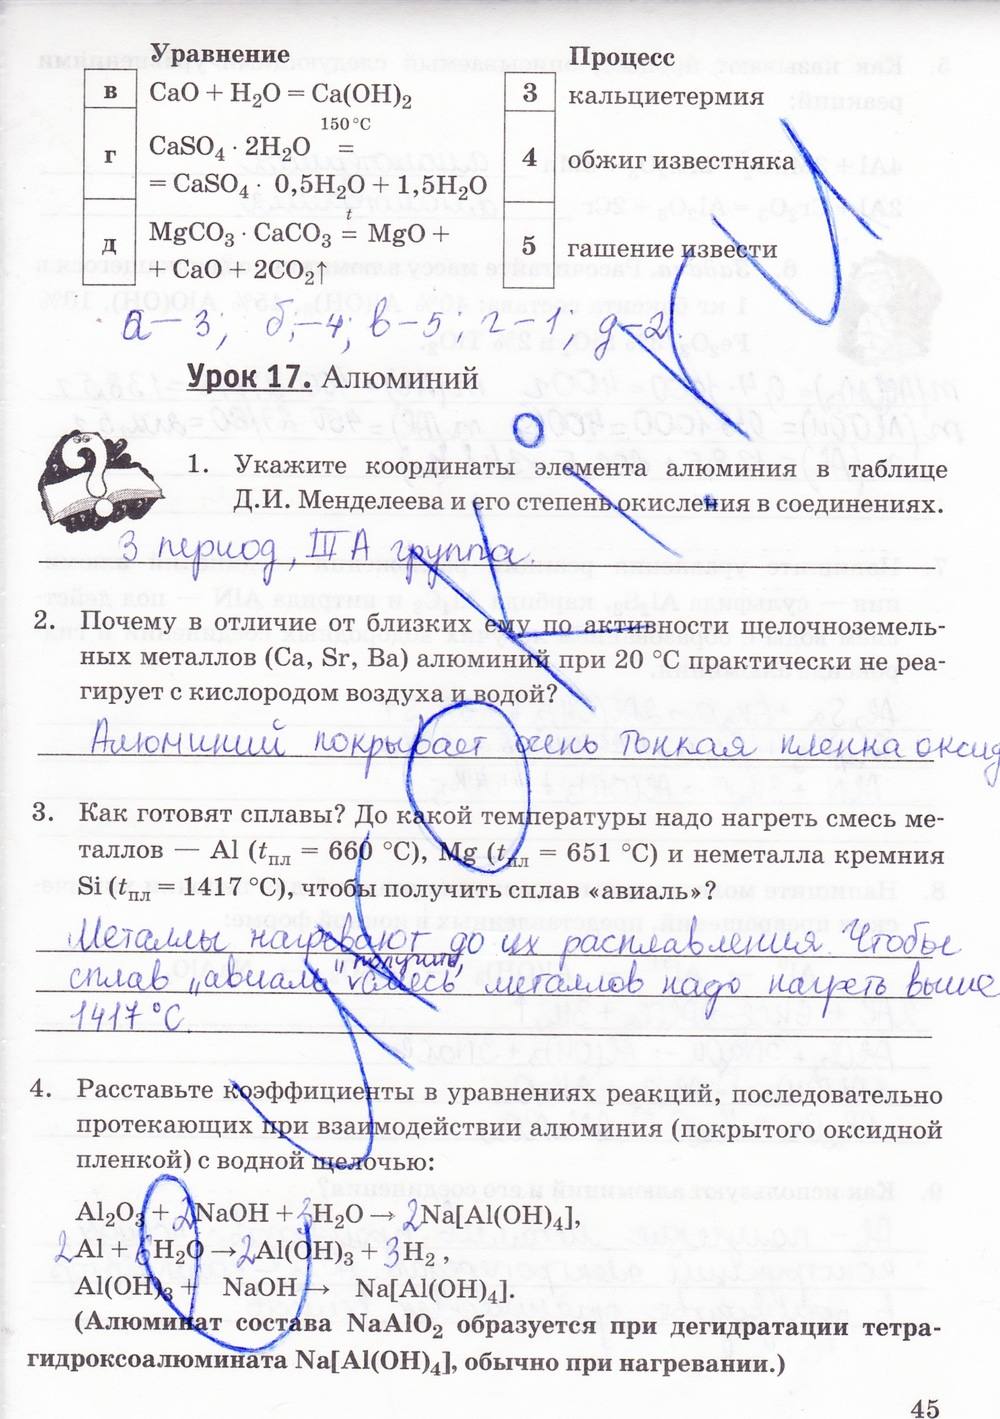 Уравнение Процесс
в CaO + H₂O = Ca(OH)₂ 3 кальциетермия
150 °C
г CaSO₄ · 2H₂O = 4 обжиг известняка
= CaSO₄ · 0,5H₂O + 1,5H₂O
t
д MgCO₃ · CaCO₃ = MgO + 5 гашение извести
+ CaO + 2CO₂↑
а–3; б–4; в–5; г–1; д–2.
Урок 17. Алюминий
1. Укажите координаты элемента алюминия в таблице
Д.И. Менделеева и его степень окисления в соединениях.
3 период, III А группа.
2. Почему в отличие от близких ему по активности щелочноземель-
ных металлов (Ca, Sr, Ba) алюминий при 20 °C практически не реа-
гирует с кислородом воздуха и водой?
Алюминий покрывает очень тонкая пленка оксид
3. Как готовят сплавы? До какой температуры надо нагреть смесь ме-
таллов — Al (tпл = 660 °C), Mg (tпл = 651 °C) и неметалла кремния
Si (tпл = 1417 °C), чтобы получить сплав «авиаль»?
Металлы нагревают до их расплавления. Чтобы
сплав „авиаль“ получить, смесь металлов надо нагреть выше
1417 °C.
4. Расставьте коэффициенты в уравнениях реакций, последовательно
протекающих при взаимодействии алюминия (покрытого оксидной
пленкой) с водной щелочью:
Al₂O₃ + 2NaOH + 3H₂O → 2Na[Al(OH)₄],
2Al + 6H₂O → 2Al(OH)₃ + 3H₂,
Al(OH)₃ + NaOH → Na[Al(OH)₄].
(Алюминат состава NaAlO₂ образуется при дегидратации тетра-
гидроксоалюмината Na[Al(OH)₄], обычно при нагревании.)
45